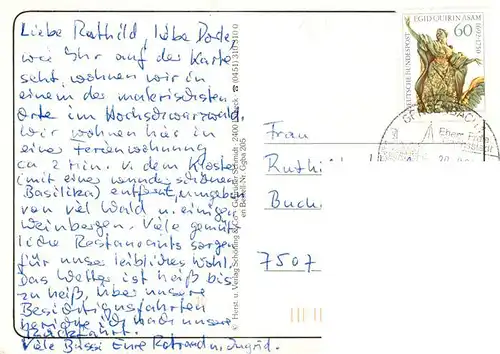 Liebe Ruthild, liebe Dode
wie Ihr auf der Karte
seht, wohnen wir in
einem der malerischsten
Orte im Hochschwarzwald.
Wir wohnen hier in
einer Ferienwohnung
ca 2 Min. v. dem Kloster
(mit einer wunderschönen
Basilika) entfernt, umgeben
von viel Wald u. einigen
Weinbergen. Viele gemüt
liche Restaurants sorgen
für unser leibliches Wohl.
Das Wetter ist heiß bis
zu heiß, über unsere
Besichtigungsfahrten
berichte ich nach unserer
Rückfahrt.
Viele Bussi Eure u. Ingrid.
© Herst. u. Verlag Schöning & Co + Gebrüder Schmidt · 2400 Lübeck ☎ (0451) 310310
Bestell-Nr. Ggba 205
EGID QUIRIN ASAM
1692-1750
60
DEUTSCHE BUNDESPOST
Frau
Ruthi
Buch
7507